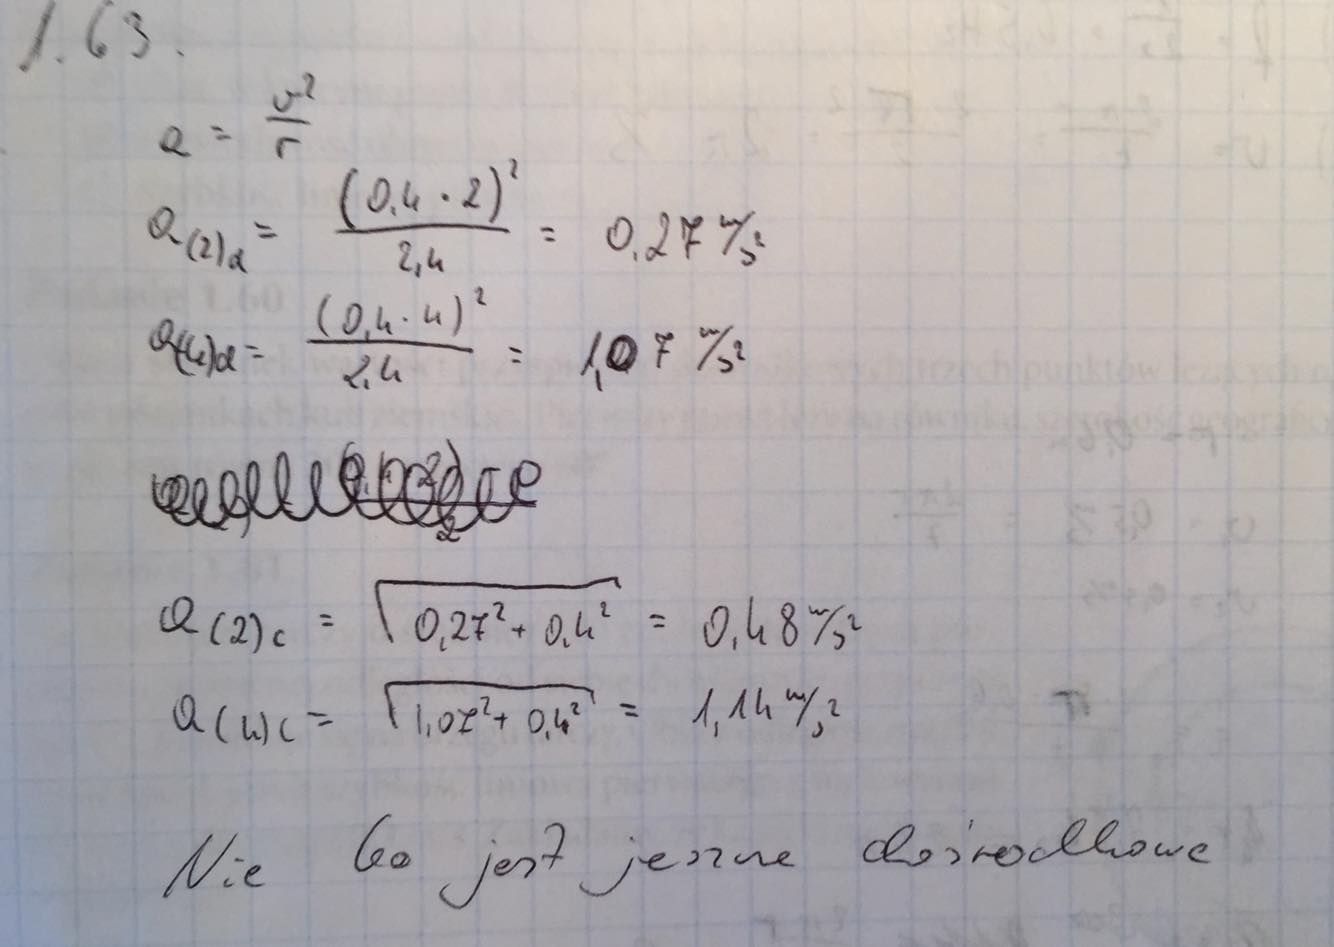 1.63.
a = v²/r
a(2)d = (0,4 · 2)²/2,4 = 0,27 m/s²
a(4)d = (0,4 · 4)²/2,4 = 1,07 m/s²
a(2)c = √(0,27² + 0,4²) = 0,48 m/s²
a(4)c = √(1,07² + 0,4²) = 1,14 m/s²
Nie bo jest jeszcze dośrodkowe